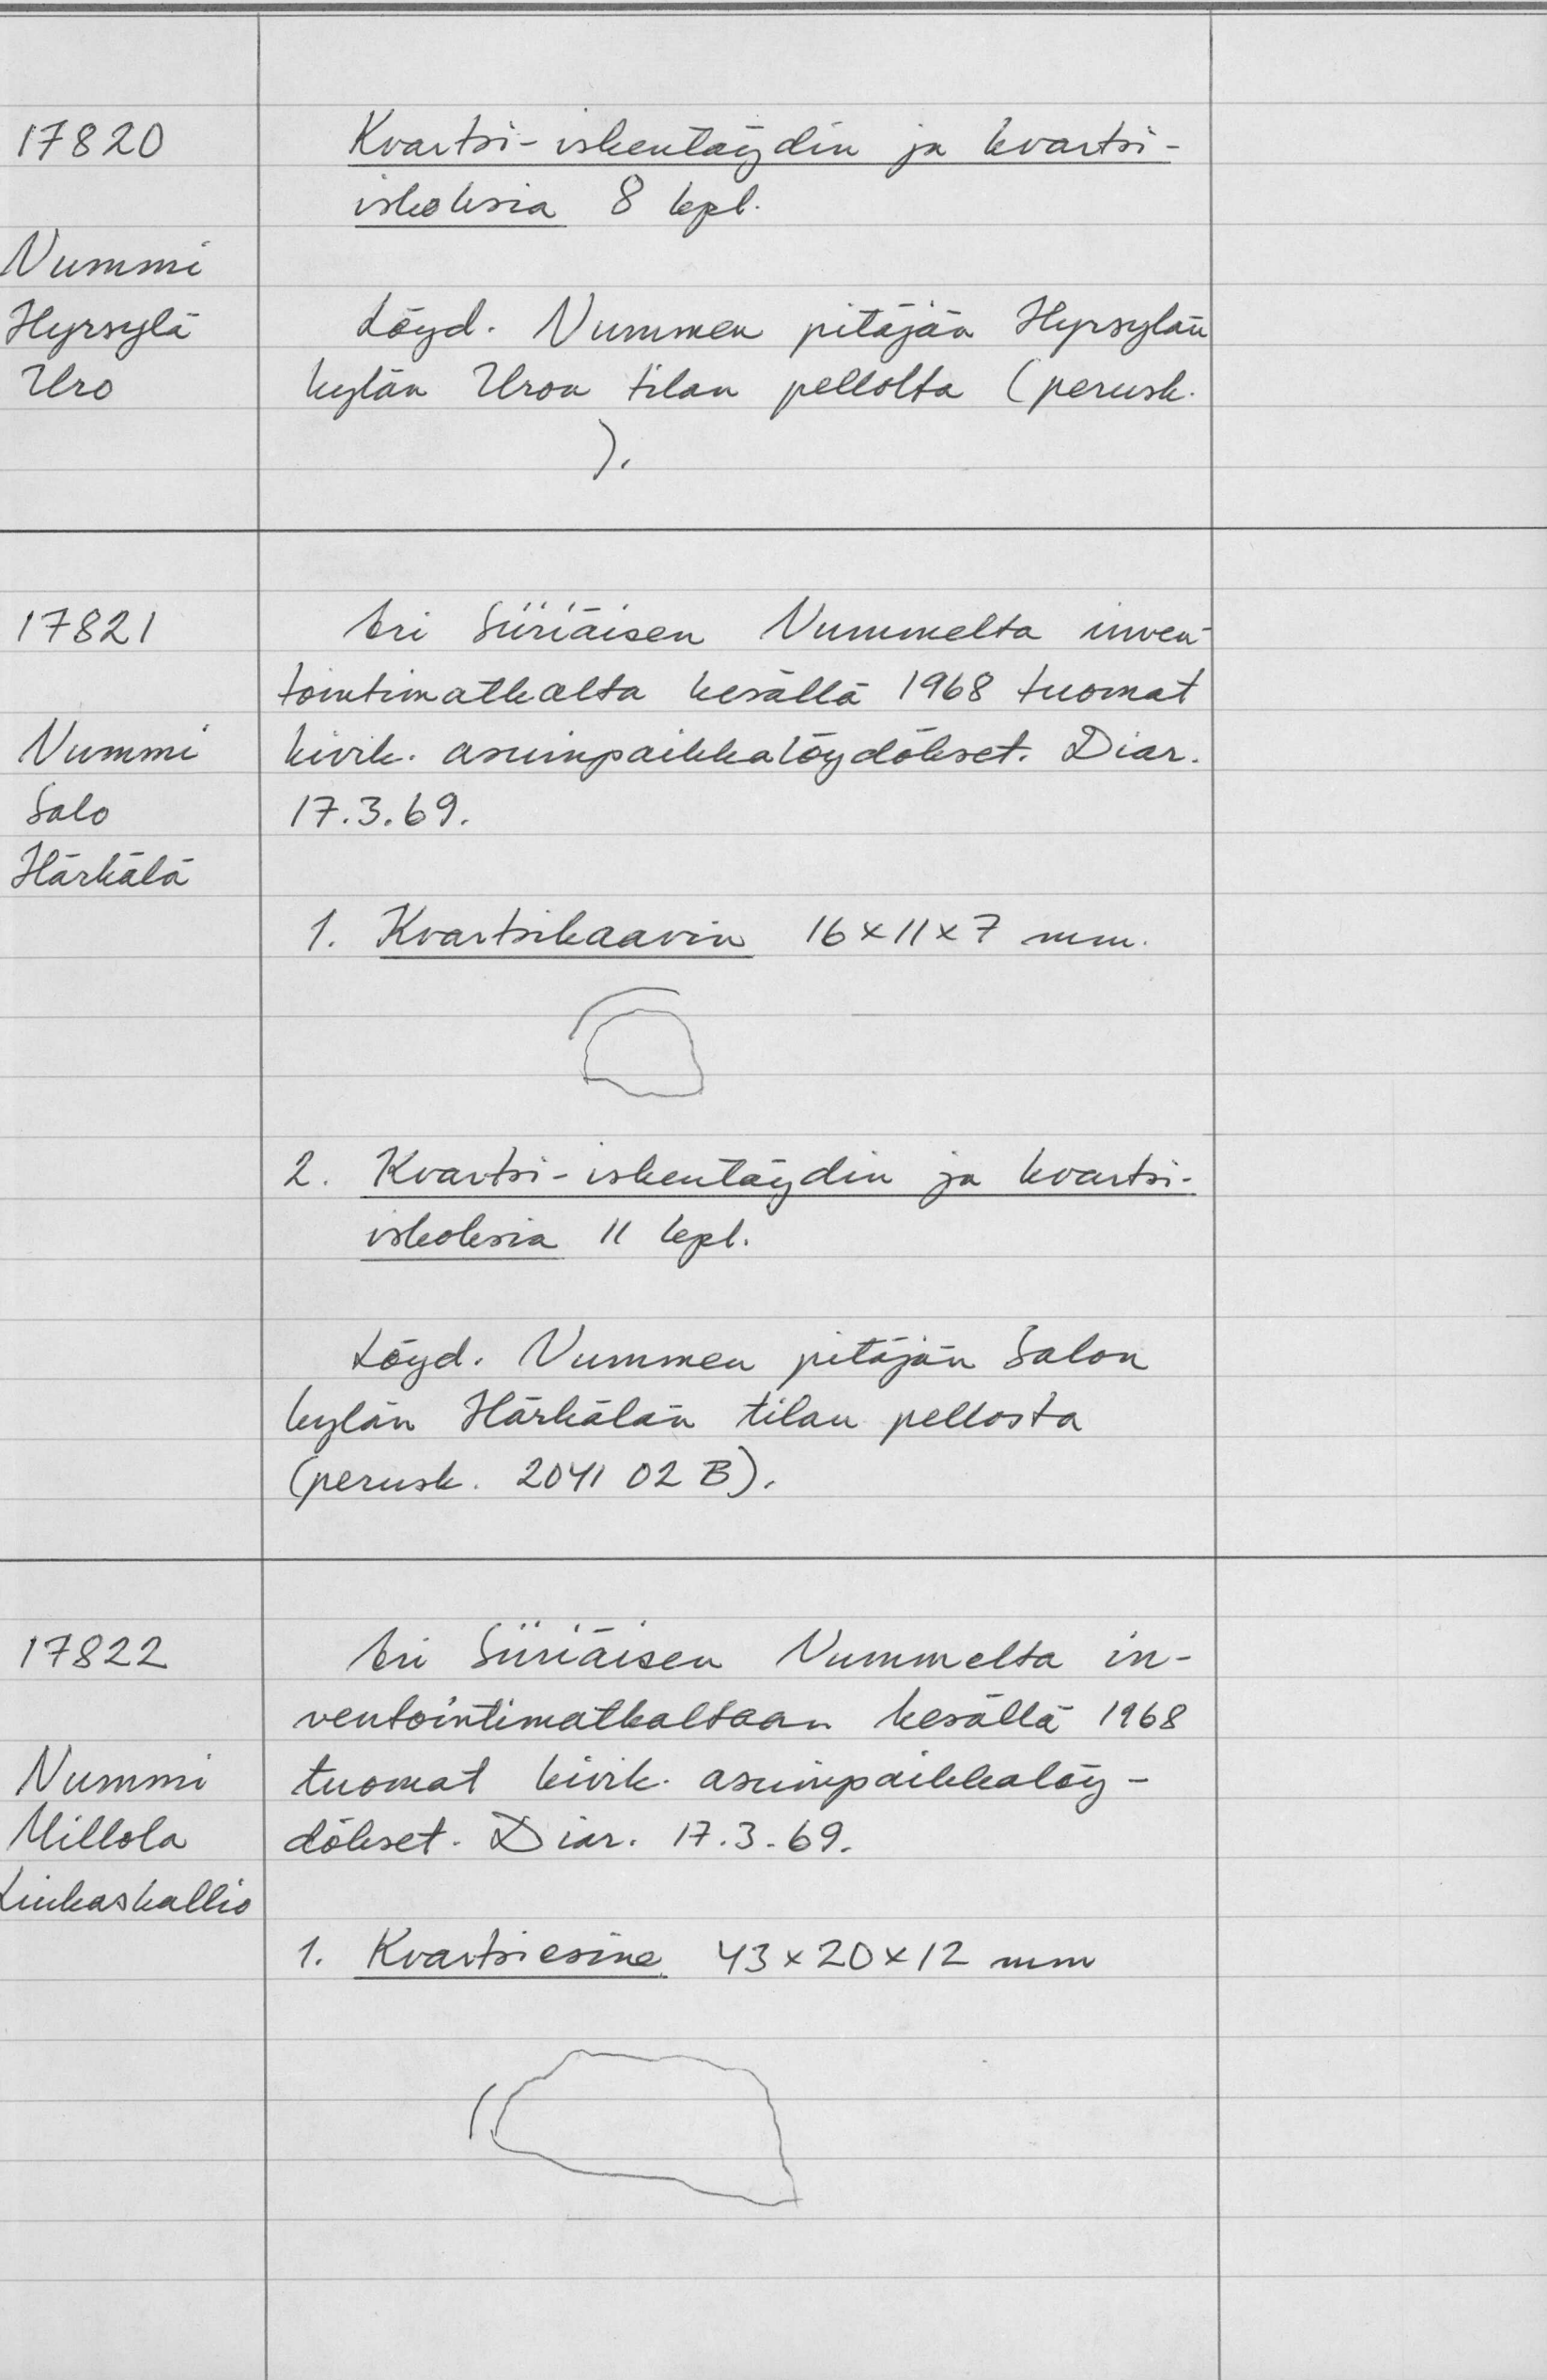 17820
Kvartsi-iskentäydin ja kvartsi-
iskoksia 8 kpl.
Nummi
Hyrsylä
Uro
Löyd. Nummen pitäjän Hyrsylän
kylän Uron tilan pellolta (perusk.
).
17821
Nummi
Salo
Härkälä
Ari Siiriäisen Nummelta inven-
tointimatkalta kesällä 1968 tuomat
kivik. asuinpaikkalöydökset. Diar.
17.3.69.
1. Kvartsikaavin 16×11×7 mm.
2. Kvartsi-iskentäydin ja kvartsi-
iskoksia 11 kpl.
Löyd. Nummen pitäjän Salon
kylän Härkälän tilan pellosta
(perusk. 2041 02 B).
17822
Nummi
Millola
Liukaskallio
Ari Siiriäisen Nummelta in-
ventointimatkaltaan kesällä 1968
tuomat kivik. asuinpaikkalöy-
dökset. Diar. 17.3.69.
1. Kvartsiesine 43×20×12 mm